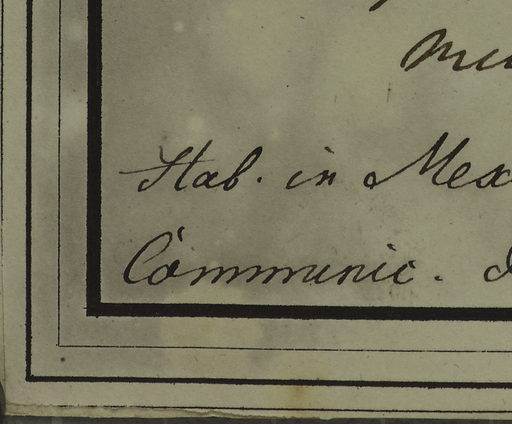 Hab. in Mex
Communic.